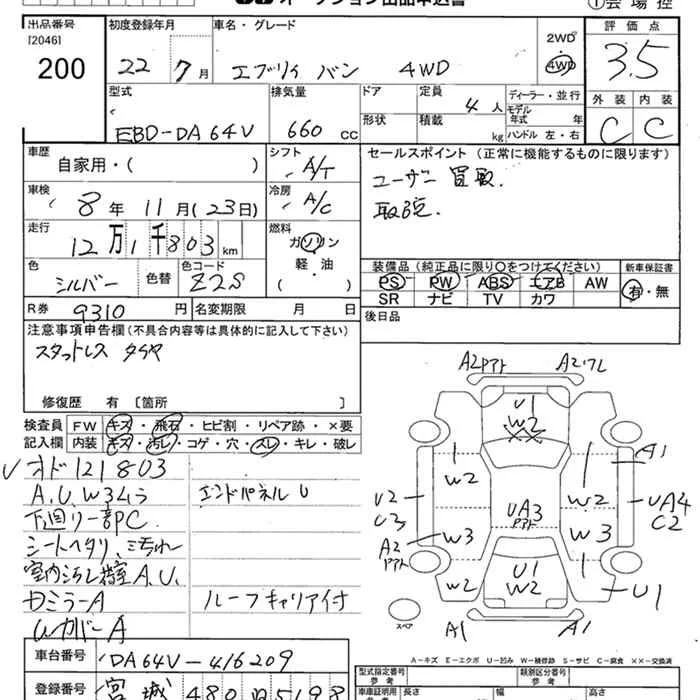 オークション出品申込書
①会場控
出品番号 初度登録年月 車名・グレード 2WD 評価点
[2046]
200 22 7月 エブリィ バン 4WD 4WD 3.5
型式 排気量 ドア 定員 4人 ディーラー・並行 外装 内装
EBD-DA64V 660 cc 形状 積載 kg モデル年式 年 C C
ハンドル 左・右
車歴 自家用・( ) シフト A/T セールスポイント (正常に機能するものに限ります)
車検 8年 11月(23日) 冷房 A/C ユーザー買取.
取説.
走行 12万1千803km 燃料 ガソリン
軽・油
色 シルバー 色替 色コード Z2S 装備品 (純正品に限り○をつけてください) 新車保証書
PS PW ABS エアB AW 有・無
SR ナビ TV カワ
R券 9310円 名変期限 月 日 後日品
注意事項申告欄(不具合内容等は具体的に記入して下さい)
スタットレス タイヤ
修復歴 有 [箇所 ]
検査員 FW キズ・飛石・ヒビ割・リペア跡・×要
記入欄 内装 キズ・汚れ・コゲ・穴・スレ・キレ・破レ
オド121803
A.U.W3キラ エンドパネルU
下廻り一部PC.
シートヘタリ、汚れ
室内汚レ荷室A.U.
ドミラーA ルーフキャリア付
A2アト A2ワレ
U1
W2
××
A1
W2 W2
U2 UA3 UA4
U3 アト C2
W3 W3
A2
アト
U1
W2 W2 U1
スペア A1 A1
A-キズ E-エクボ U-凹み W-補修跡 S-サビ C-腐食 ××-交換済
車台番号 DA64V-416209
登録番号 宮城 480 5198
型式指定番号 類別区分番号
参考 参考
車庫証明用 長さ 幅 高さ
参考